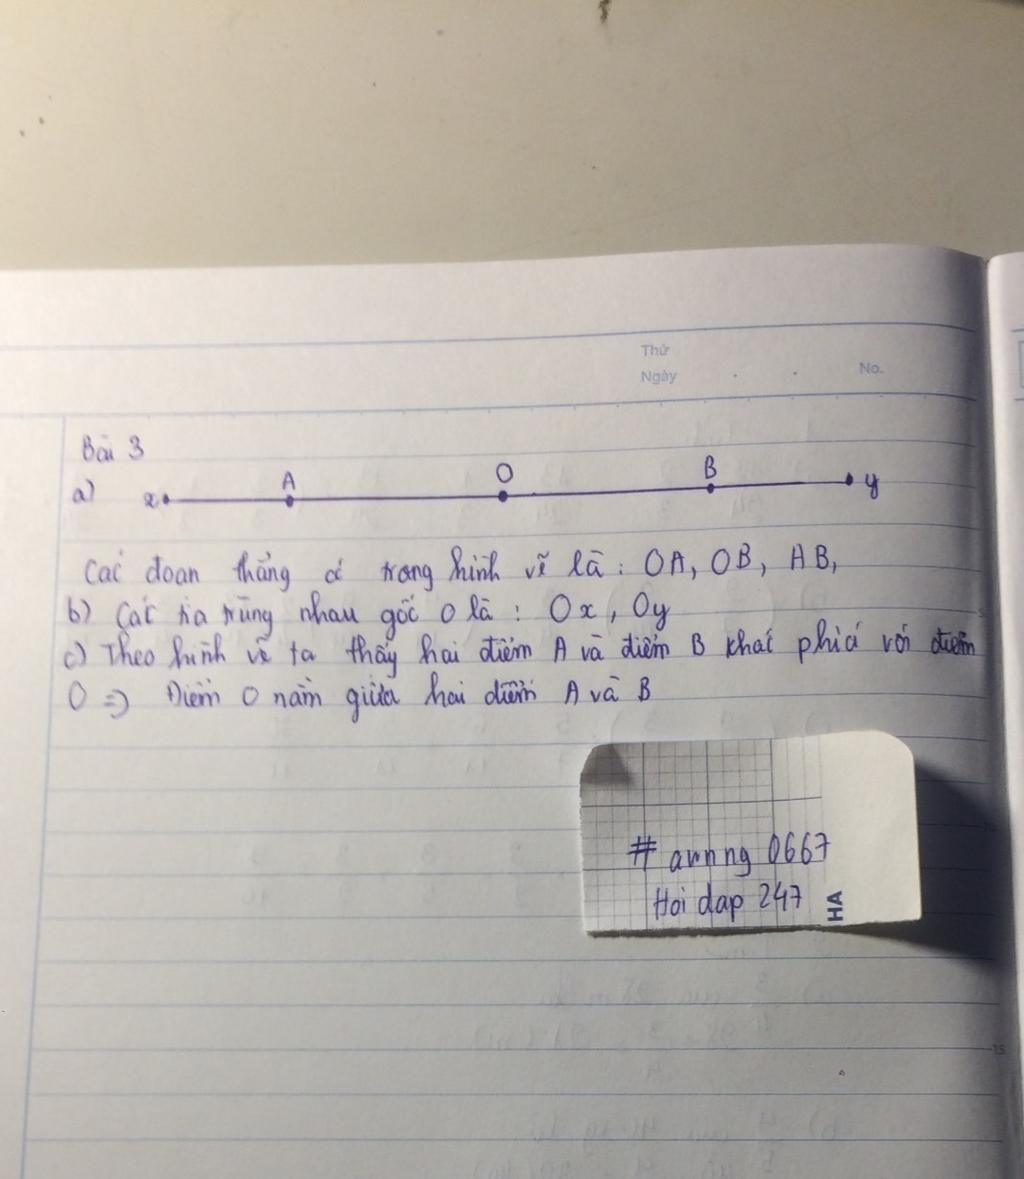 Thứ
Ngày . . No.
Bài 3
a) x A O B y
Các đoạn thẳng có trong hình vẽ là: OA, OB, AB,
b) Các tia trùng nhau gốc O là: Ox, Oy
c) Theo hình vẽ ta thấy hai điểm A và điểm B khác phía với điểm
O => Điểm O nằm giữa hai điểm A và B
# anhng 0667
Hoi dap 247
HA
15